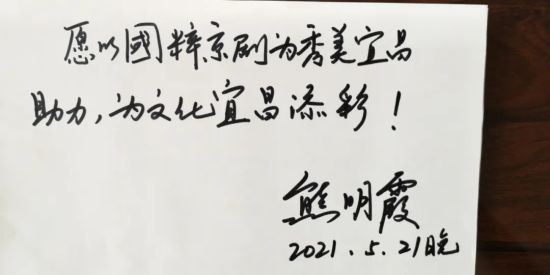 愿以國粹京剧为秀美宜昌
助力，为文化宜昌添彩！
熊明霞
2021.5.21晚